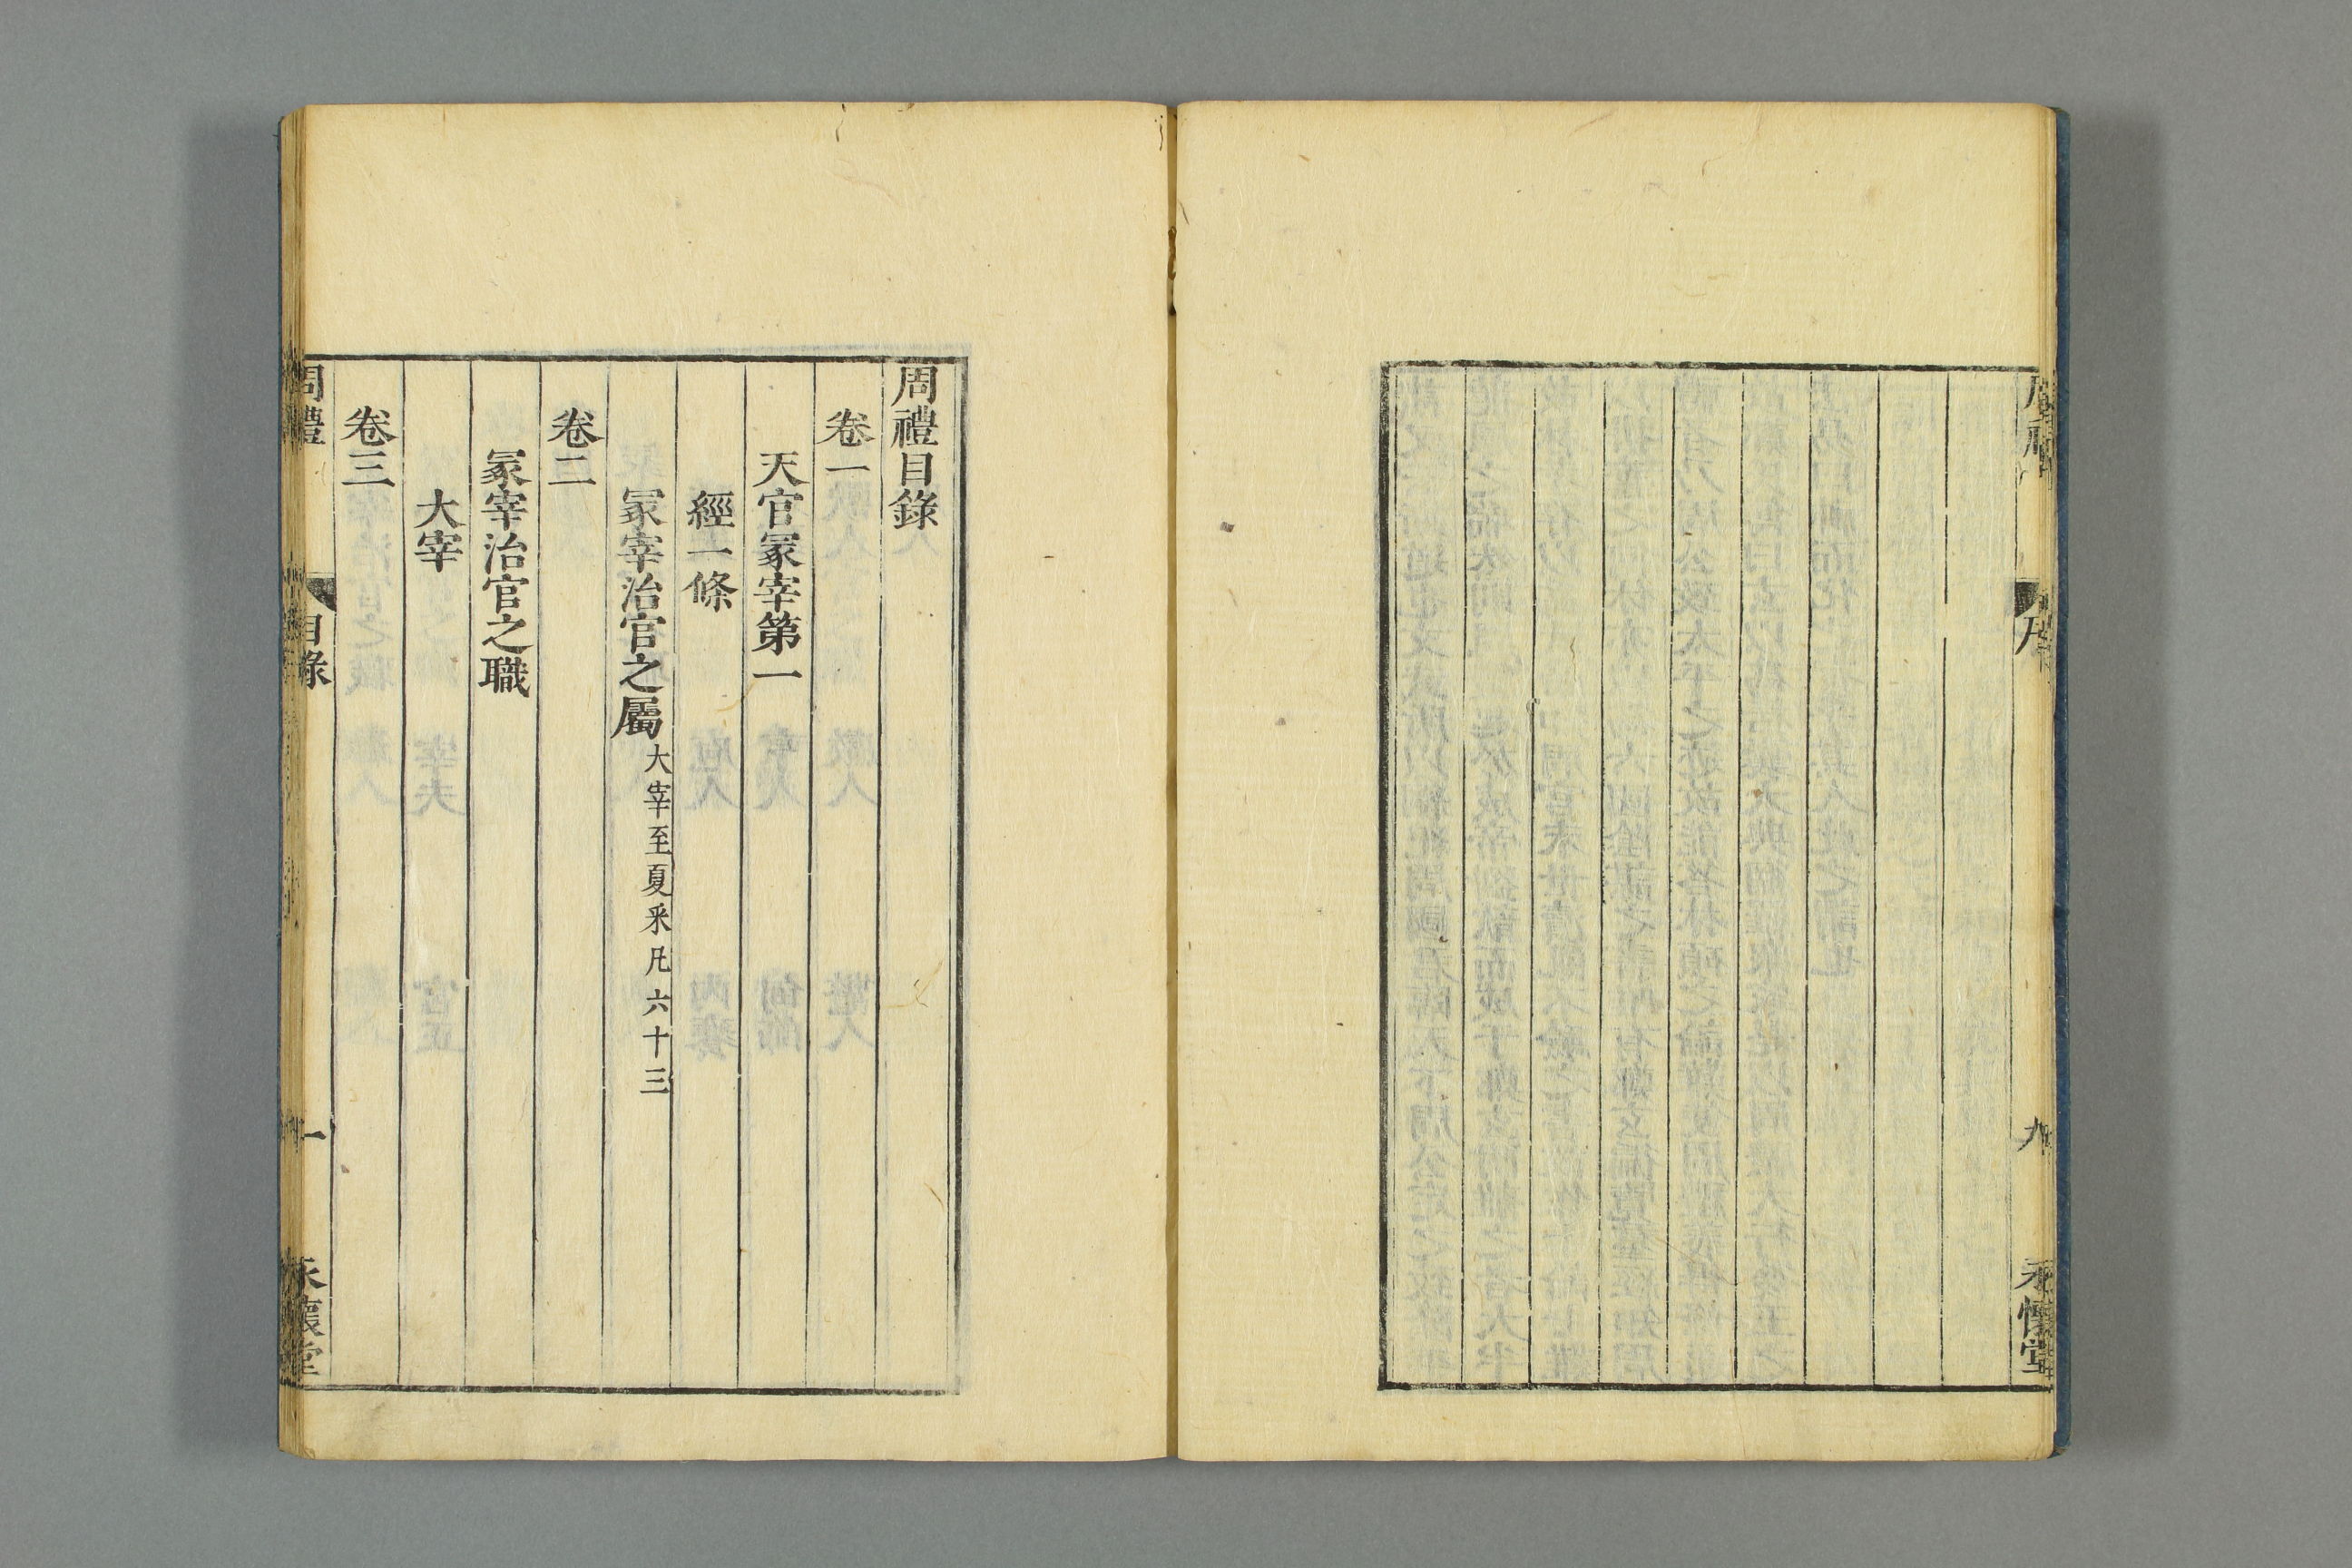 九
永懷堂
周禮目錄
卷一
天官冢宰第一
經一條
冢宰治官之屬大宰至夏采凡六十三
卷二
冢宰治官之職
大宰
卷三
周禮
目錄
一
永懷堂